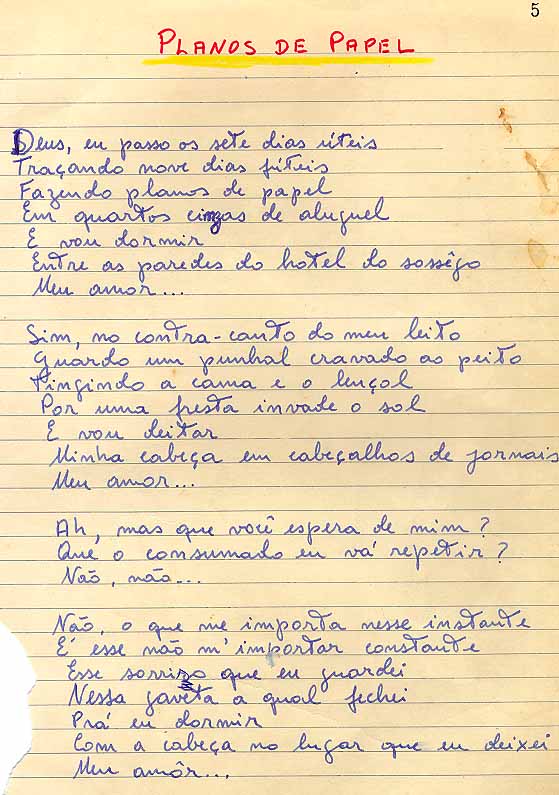 5
PLANOS DE PAPEL
Deus, eu passo os sete dias úteis
Traçando nove dias fúteis
Fazendo planos de papel
Em quartos cinzas de aluguel
E vou dormir
Entre as paredes do hotel do sossêgo
Meu amor...
Sim, no contra-canto do meu leito
Guardo um punhal cravado ao peito
Tingindo a cama e o lençol
Por uma fresta invade o sol
E vou deitar
Minha cabeça em cabeçalhos de jornais
Meu amor...
Ah, mas que você espera de mim?
Que o consumado eu vá repetir?
Não, não...
Não, o que me importa nesse instante
É esse não m'importar constante
Esse sorriso que eu guardei
Nessa gaveta a qual fechei
Prá eu dormir
Com a cabeça no lugar que eu deixei
Meu amôr...